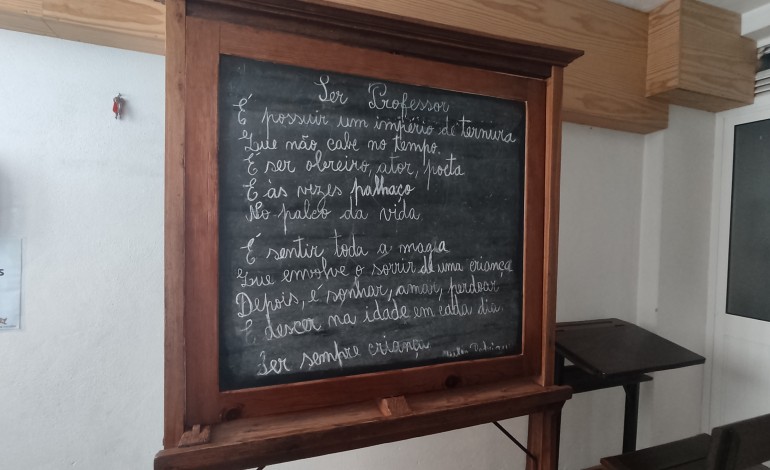 Ser Professor
É possuir um império de ternura
Que não cabe no tempo.
É ser obreiro, ator, poeta
E às vezes palhaço
No palco da vida.
É sentir toda a magia
Que envolve o sorrir de uma criança
Depois, é sonhar, amar, perdoar
E, descer na idade em cada dia.
Ser sempre criança
S